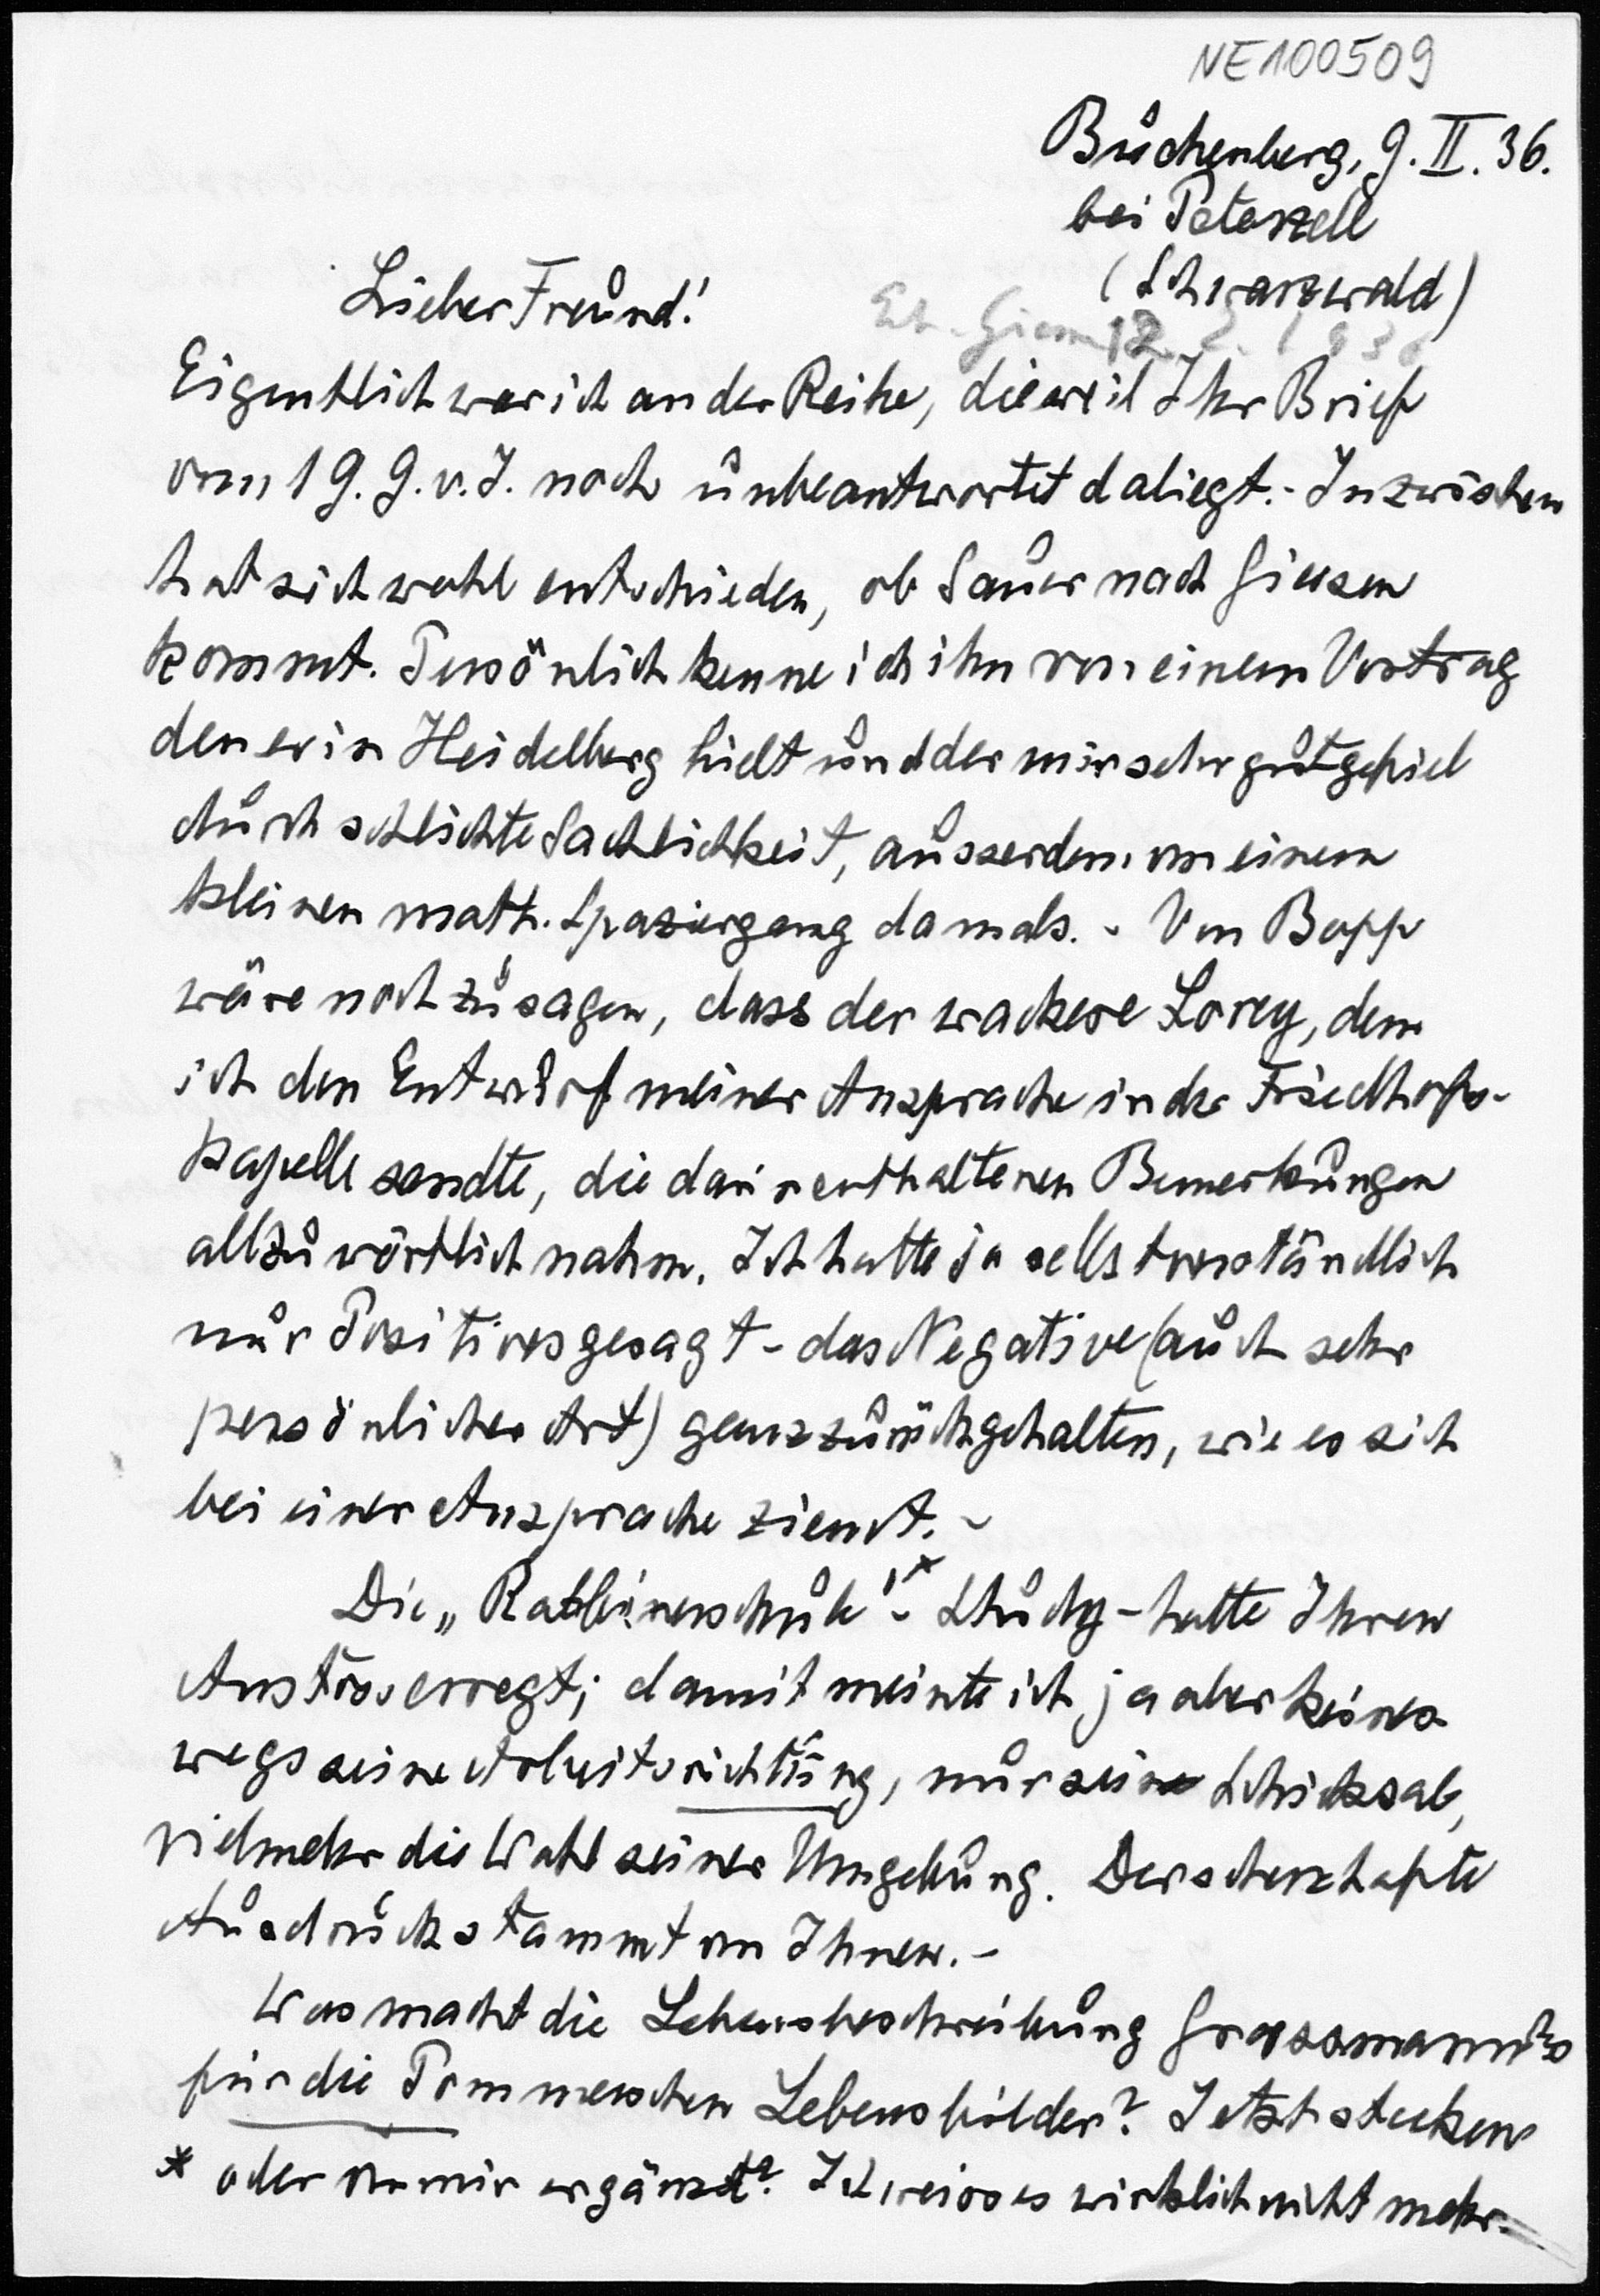 NE100509
Buchenberg, 9. II. 36.
bei Peterzell
(Schwarzwald)
Lieber Freund!
Eigentlich war ich an der Reihe, dieweil Ihr Brief
vom 19. 9. v. J. noch unbeantwortet daliegt. - Inzwischen
hat sich wohl entschieden, ob Sauer nach Giessen
kommt. Persönlich kenne ich ihn von einem Vortrag
den er in Heidelberg hielt und der mir sehr gut gefiel
durch schlichte Sachlichkeit, ausserdem von einem
kleinen math. Spaziergang damals. - Von Bopp
wäre noch zu sagen, dass der wackere Lorey, dem
ich den Entwurf meiner Ansprache in der Friedhofs-
kapelle sandte, die darin enthaltenen Bemerkungen
allzu wörtlich nahm. Ich hatte ja selbstverständlich
nur Positives gesagt - das Negative (auch sehr
persönlicher Art) ganz zurückgehalten, wie es sich
bei einer Ansprache ziemt. -
Die „Rabbinerschule"* - Study - hatte Ihren
Anstoss erregt; damit meinte ich ja aber keines
wegs seine Arbeitsrichtung, nur sein Schicksal,
vielmehr die Wahl seiner Umgebung. Der scherzhafte
Ausdruck stammt von Ihnen. -
Was macht die Lebensbeschreibung Grassmann's
für die Pommerschen Lebensbilder? Jetzt stecken
* oder von mir ergänzt? Ich weiss es wirklich nicht mehr.